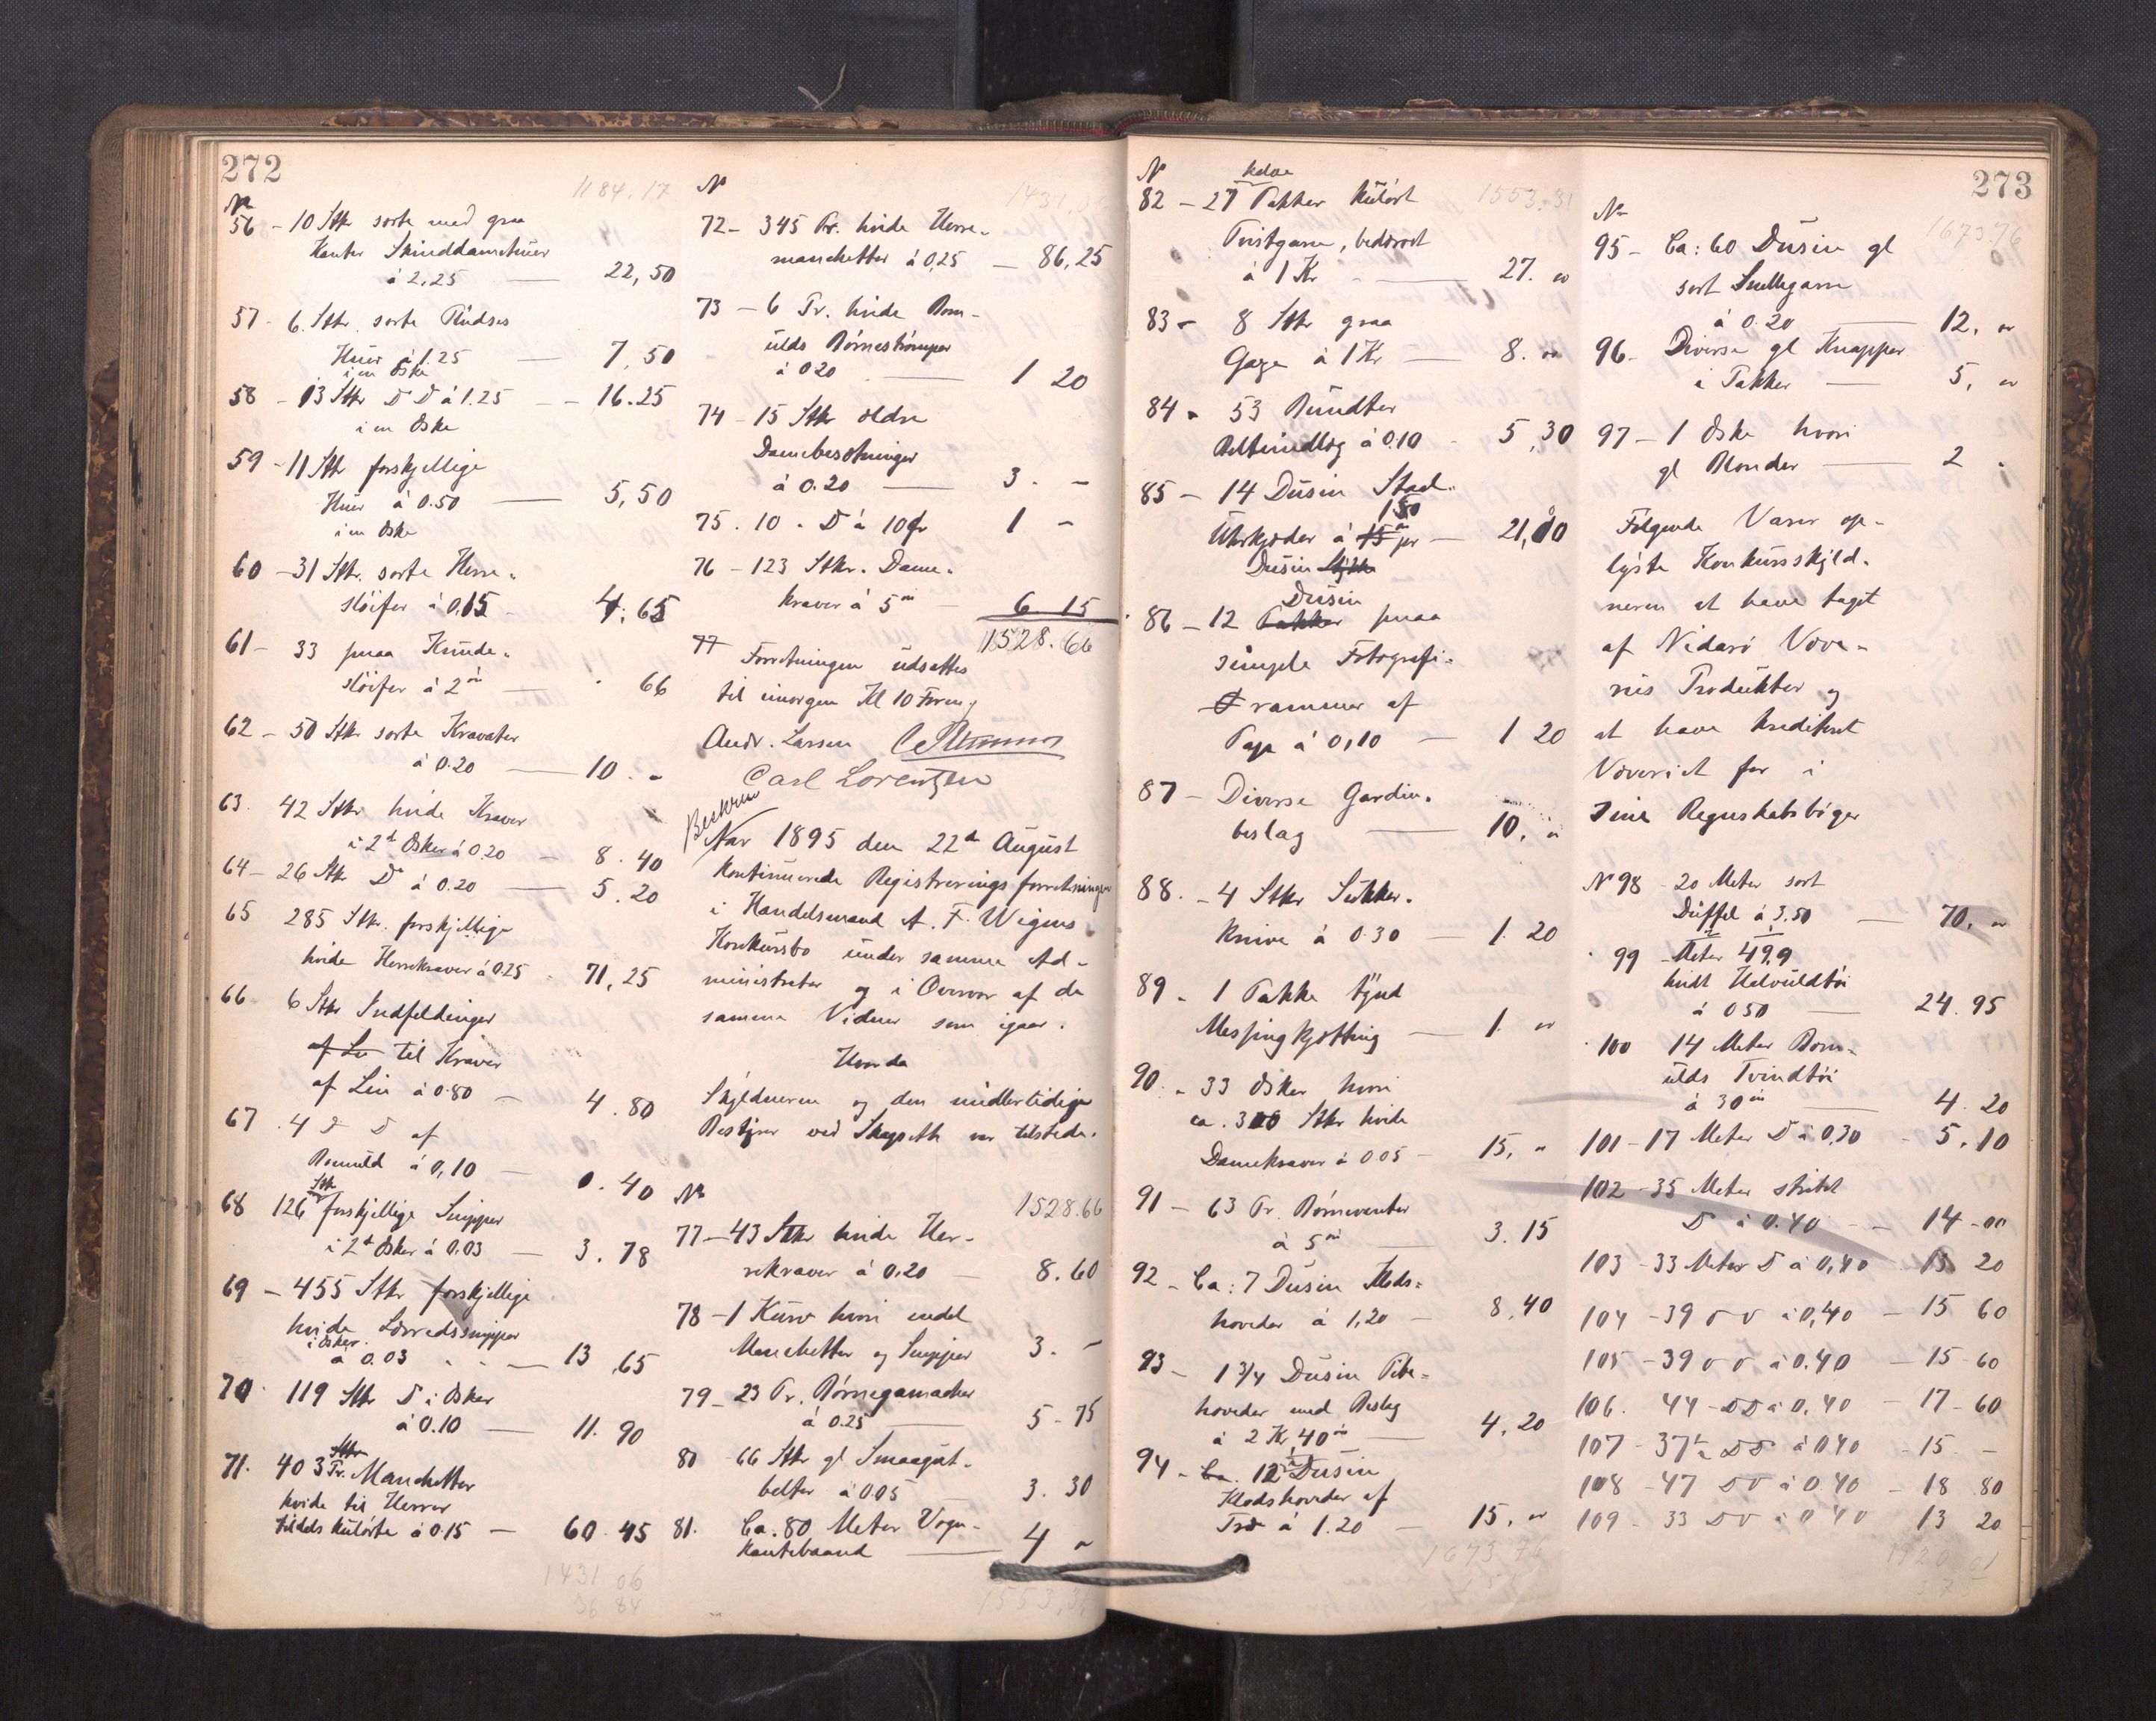 272
No 1184.17
56 - 10 Stkr sorte med graa
Kanter Skinddamehuer
á 2,25 — 22,50
57 - 6 Stkr. sorte Pludses
Huer á 1.25 — 7,50
i en Øske
58 - 13 Stkr D D á 1.25 — 16.25
i en Øske
59 - 11 Stkr forskjellige
Huer á 0.50 — 5,50
i en Øske
60 - 31 Stk. sorte Herre-
sløifer á 0,15 - 4.65
61 - 33 smaa Kunde-
sløifer á 2 ør — . 66
62 - 50 Stkr sorte Kravater
á 0.20 — 10. -
63. 42 Stkr hvide Kraver
i 2d Øsker á 0.20 — 8.40
64 - 26 Stkr Do á 0.20 — 5.20
65 285 Stk. forskjellige
hvide Herrekraver á 0.25 - 71,25
66 6 Stkr Indfeldinger
af Li til Kraver
af Lin á 0.80 — 4.80
67 . 4 D D af
Bomuld á 0,10 — 0.40
Stk
68 126 forskjellige Snipper
i 2d Øsker á 0.03 — 3.78
69 - 455 Stkr forskjellige
hvide Lærredssnipper
i Øsker
á 0.03 — 13,65
70. 119 Stkr D i Øsker
á 0.10 — 11.90
Stkr
71. 403 Pr. Manchetter
hvide til Herrer
tildels kulørte á 0.15 — 60.45
1431 06
36 84
No 1431,06
72 - 345 Pr. hvide Herre-
manchetter á 0,25 — 86,25
73 - 6 Pr. hvide Bom-
ulds Børnestrømper
á 0.20 — 1 20
74 - 15 Stkr ældre
Damebesætninger
á 0.20 — 3. -
75. 10 - D á 10 ør 1 -
76 - 123 Stkr. Dame-
kraver á 5 ør — 6 15
1528.66
77 Forretningen udsattes
til imorgen Kl 10 Form.
Andr. Larsen
Carl Lorentzen
Beskreve
Aar 1895 den 22d August
kontinuerede Registreringsforretningen
i Handelsmand A. F. Wigens
Konkursbo under samme Ad-
ministrator og i Overvær af de
samme Vidner som igaar.
Hvorda
Skyldneren og den midlertidige
Bestyrer ved Skapseth var tilstede.
No 1528.66
77 - 43 Stkr hvide Her-
rekraver á 0,20 — 8.60
78 - 1 Kurv hvori endel
Manchetter og Snipper 3. -
79 - 23 Pr. Børnegamacher
á 0.25 — 5-75
80 66 Stkr gl Smaagut-
belter á 0.05 3.30
81. Ca. 80 Meter Vogn-
kantebaand — 4 "
1553,31
273
N 1553.31
halve
82 - 27 Pakker kulørt
Tvistgarn, bedærvet
á 1 Kr — 27. "
83 - 8 Stkr graa
Gaze á 1 Kr — 8. "
84 - 53 Bundter
Belteindlæg á 0.10 - 5,30
85 - 14 Dusin Staal-
150
Uhrkjæder á 15 pr — 21,00
Dusin
Dusin
86 - 12 Pakker smaa
simple Fotografi-
rammer af
Pap á 0,10 — 1 20
87 - Diverse Gardin-
beslag — 10. "
88. - 4 Stkr Sukker-
knive á 0.30 — 1.20
89 - 1 Pakke tynd
Messingkjætting — 1. "
90. - 33 Øsker hvori
ca. 300 Stkr hvide
Damekraver á 0.05 — 15. "
91 - 63 Pr. Børnevanter
á 5 ør — 3.15
92 - Ca: 7 Dusin Klods-
hoveder á 1,20 — 8,40
93 - 1 3/4 Dusin Pibe-
hoveder med Beslag
á 2 Kr 40 ør — 4,20
94 - Ca. 12½ Dusin
Klodshoveder af
Træ á 1.20 — 15. "
1673.76
No 1673.76
95 - Ca: 60 Dusin gl
sort Snellegarn
á 0.20 — 12. "
96 - Diverse gl Knapper
i Pakker — 5. "
97 - 1 Øske hvori
gl Blonder — 2 .
Følgende Varer op-
lyste Konkursskyld-
neren at have taget
af Nidarø Væve-
ries Produkter og
at have krediteret
Væveriet for i
sine Regnskabsbøger
No 98 - 20 Meter sort
Duffel á 3,50 — 70. "
99 - Meter 49,9
hvidt Helvuldtøi
á 0 50 — 24.95
100 14 Meter Bom-
ulds Tvindtøi
á 30 ør — 4.20
101 - 17 Meter D á 0,30 - 5.10
102 - 35 Meter stribet
D á 0.40 — 14-00
103 - 33 Meter D á 0,40 13 20
104 - 39 D D á 0,40 — 15 60
105 - 39 D D á 0.40 — 15-60
106. 44 - D D á 0,40 — 17-60
107 - 37½ D D á 0.40 - 15 -
108 - 47 D D á 0.40 - 18 80
109 - 33 D D á 0 40 13 20
1920 01